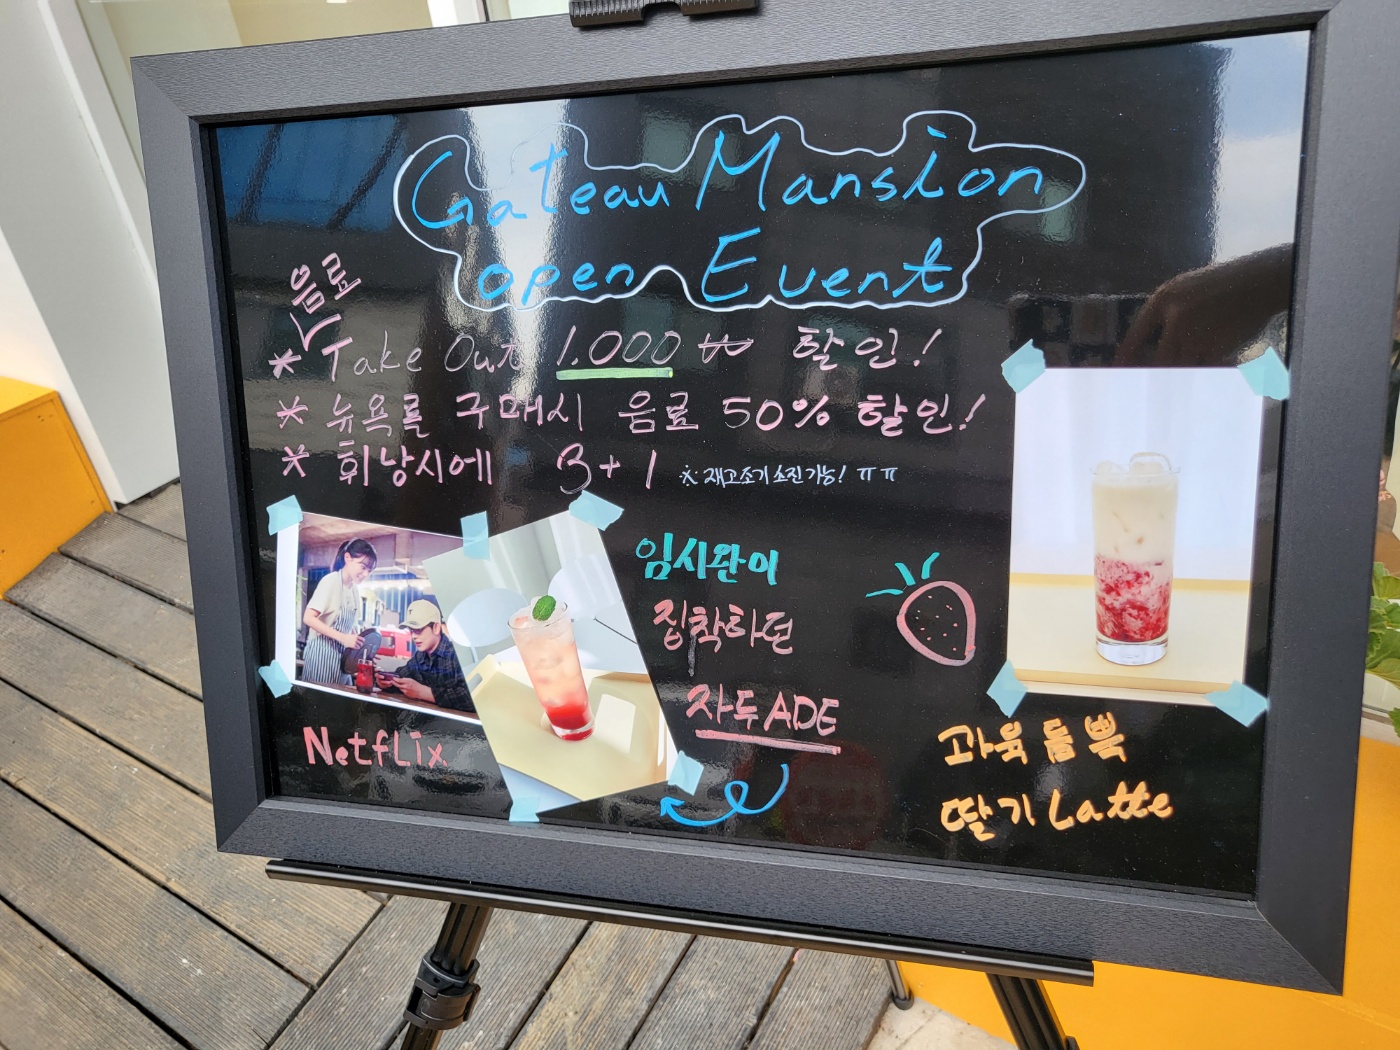 Gateau Mansion
open Event
음료
* Take Out 1.000 ₩ 할인!
* 뉴욕롤 구매시 음료 50% 할인!
* 휘낭시에 3+1 ※ 재고조기소진가능! ㅠㅠ
임시완이
집착하던
자두ADE
Netflix
과육듬뿍
딸기Latte